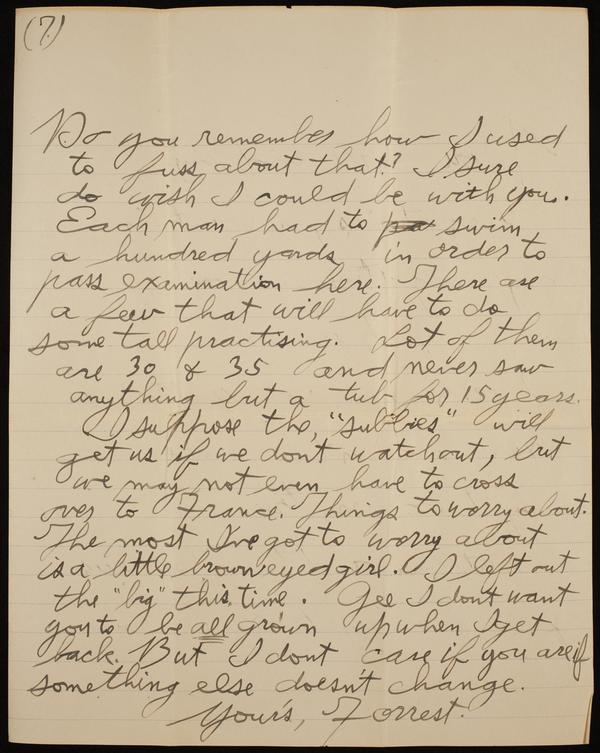 (7)
Do you remember how I used
to fuss about that? I sure
do wish I could be with you.
Each man had to pa swim
a hundred yards in order to
pass examination here. There are
a few that will have to do
some tall practising. Lot of them
are 30 & 35 and never saw
anything but a tub for 15 years.
I suppose the, "subbies" will
get us if we dont watchout, but
we may not even have to cross
over to France. Things to worry about.
The most I've got to worry about
is a little brown eyed girl. I left out
the "big" this time. Gee I dont want
you to be all grown up when I get
back. But I dont care if you are if
something else doesn't change.
Your's, Forrest.